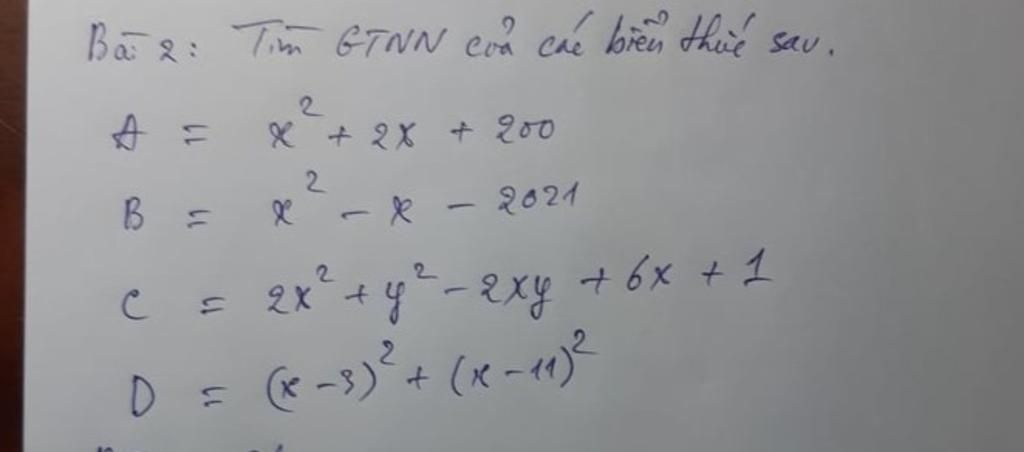 Bài 2: Tìm GTNN của các biểu thức sau.
A = x² + 2x + 200
B = x² - x - 2021
C = 2x² + y² - 2xy + 6x + 1
D = (x - 3)² + (x - 11)²